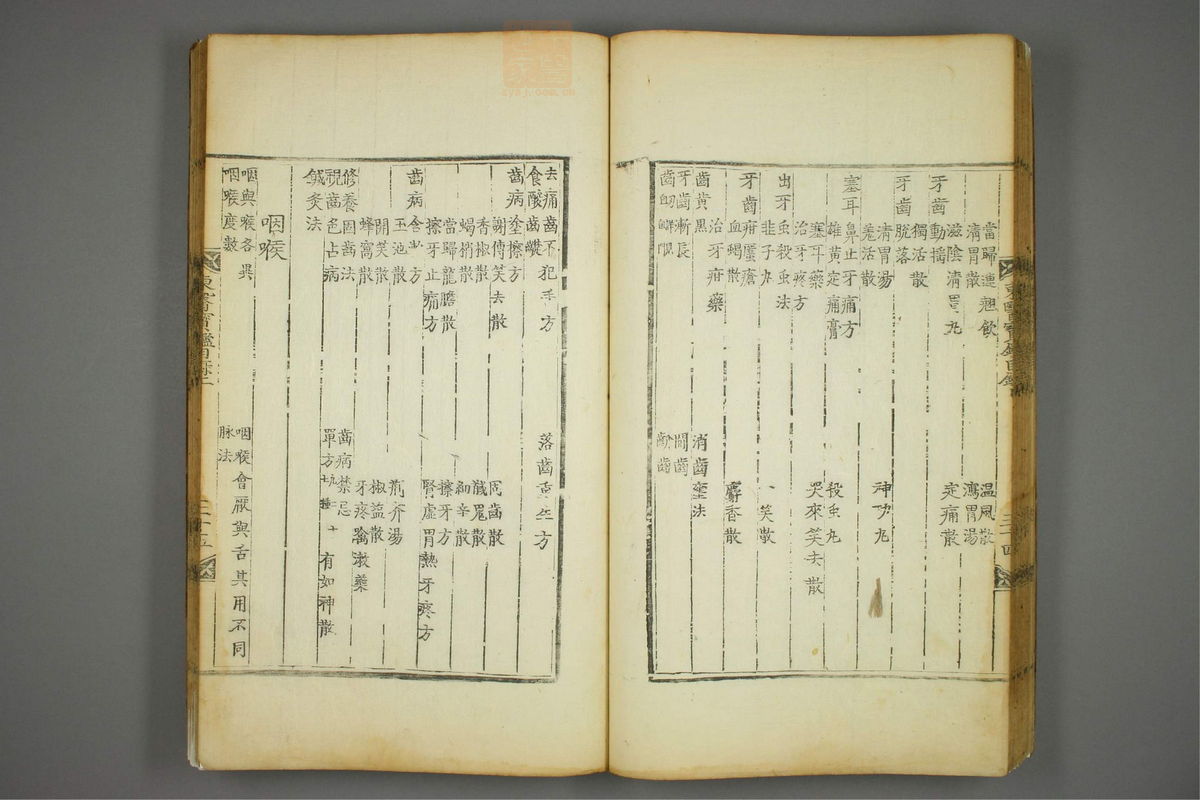 當歸連翹飲 温風散
清胃散 瀉胃湯
滋陰清胃丸 定痛散
牙齒動搖
獨活散
牙齒脫落
清胃湯 神功丸
羌活散
塞耳鼻止牙痛方
雄黃定痛膏 殺虫丸
塞耳藥 哭來笑去散
治牙疼方
出牙虫殺虫法
韭子丸 一笑散
牙齒疳䘌瘡
血竭散 麝香散
治牙疳藥
齒黃黑 消齒壅法
牙齒漸長
東醫寶鑑目錄
三十四
去痛齒不犯手方 落齒重生方
食酸齒齼
齒病塗擦方
謝傳笑去散 固齒散
香椒散
蝎梢散 細辛散
當歸龍膽散 擦牙方
擦牙止痛方 腎虛胃熱牙疼方
齒病含漱方
玉池散 荊芥湯
開笑散 椒鹽散
蜂窩散 牙疼漱藥
修養固齒法 齒病禁忌
視齒色占病 單方 有如神散
鍼灸法
咽喉
咽與喉各異 咽喉會厭與舌其用不同
咽喉度數 脉法
東醫寶鑑目錄二
三十五